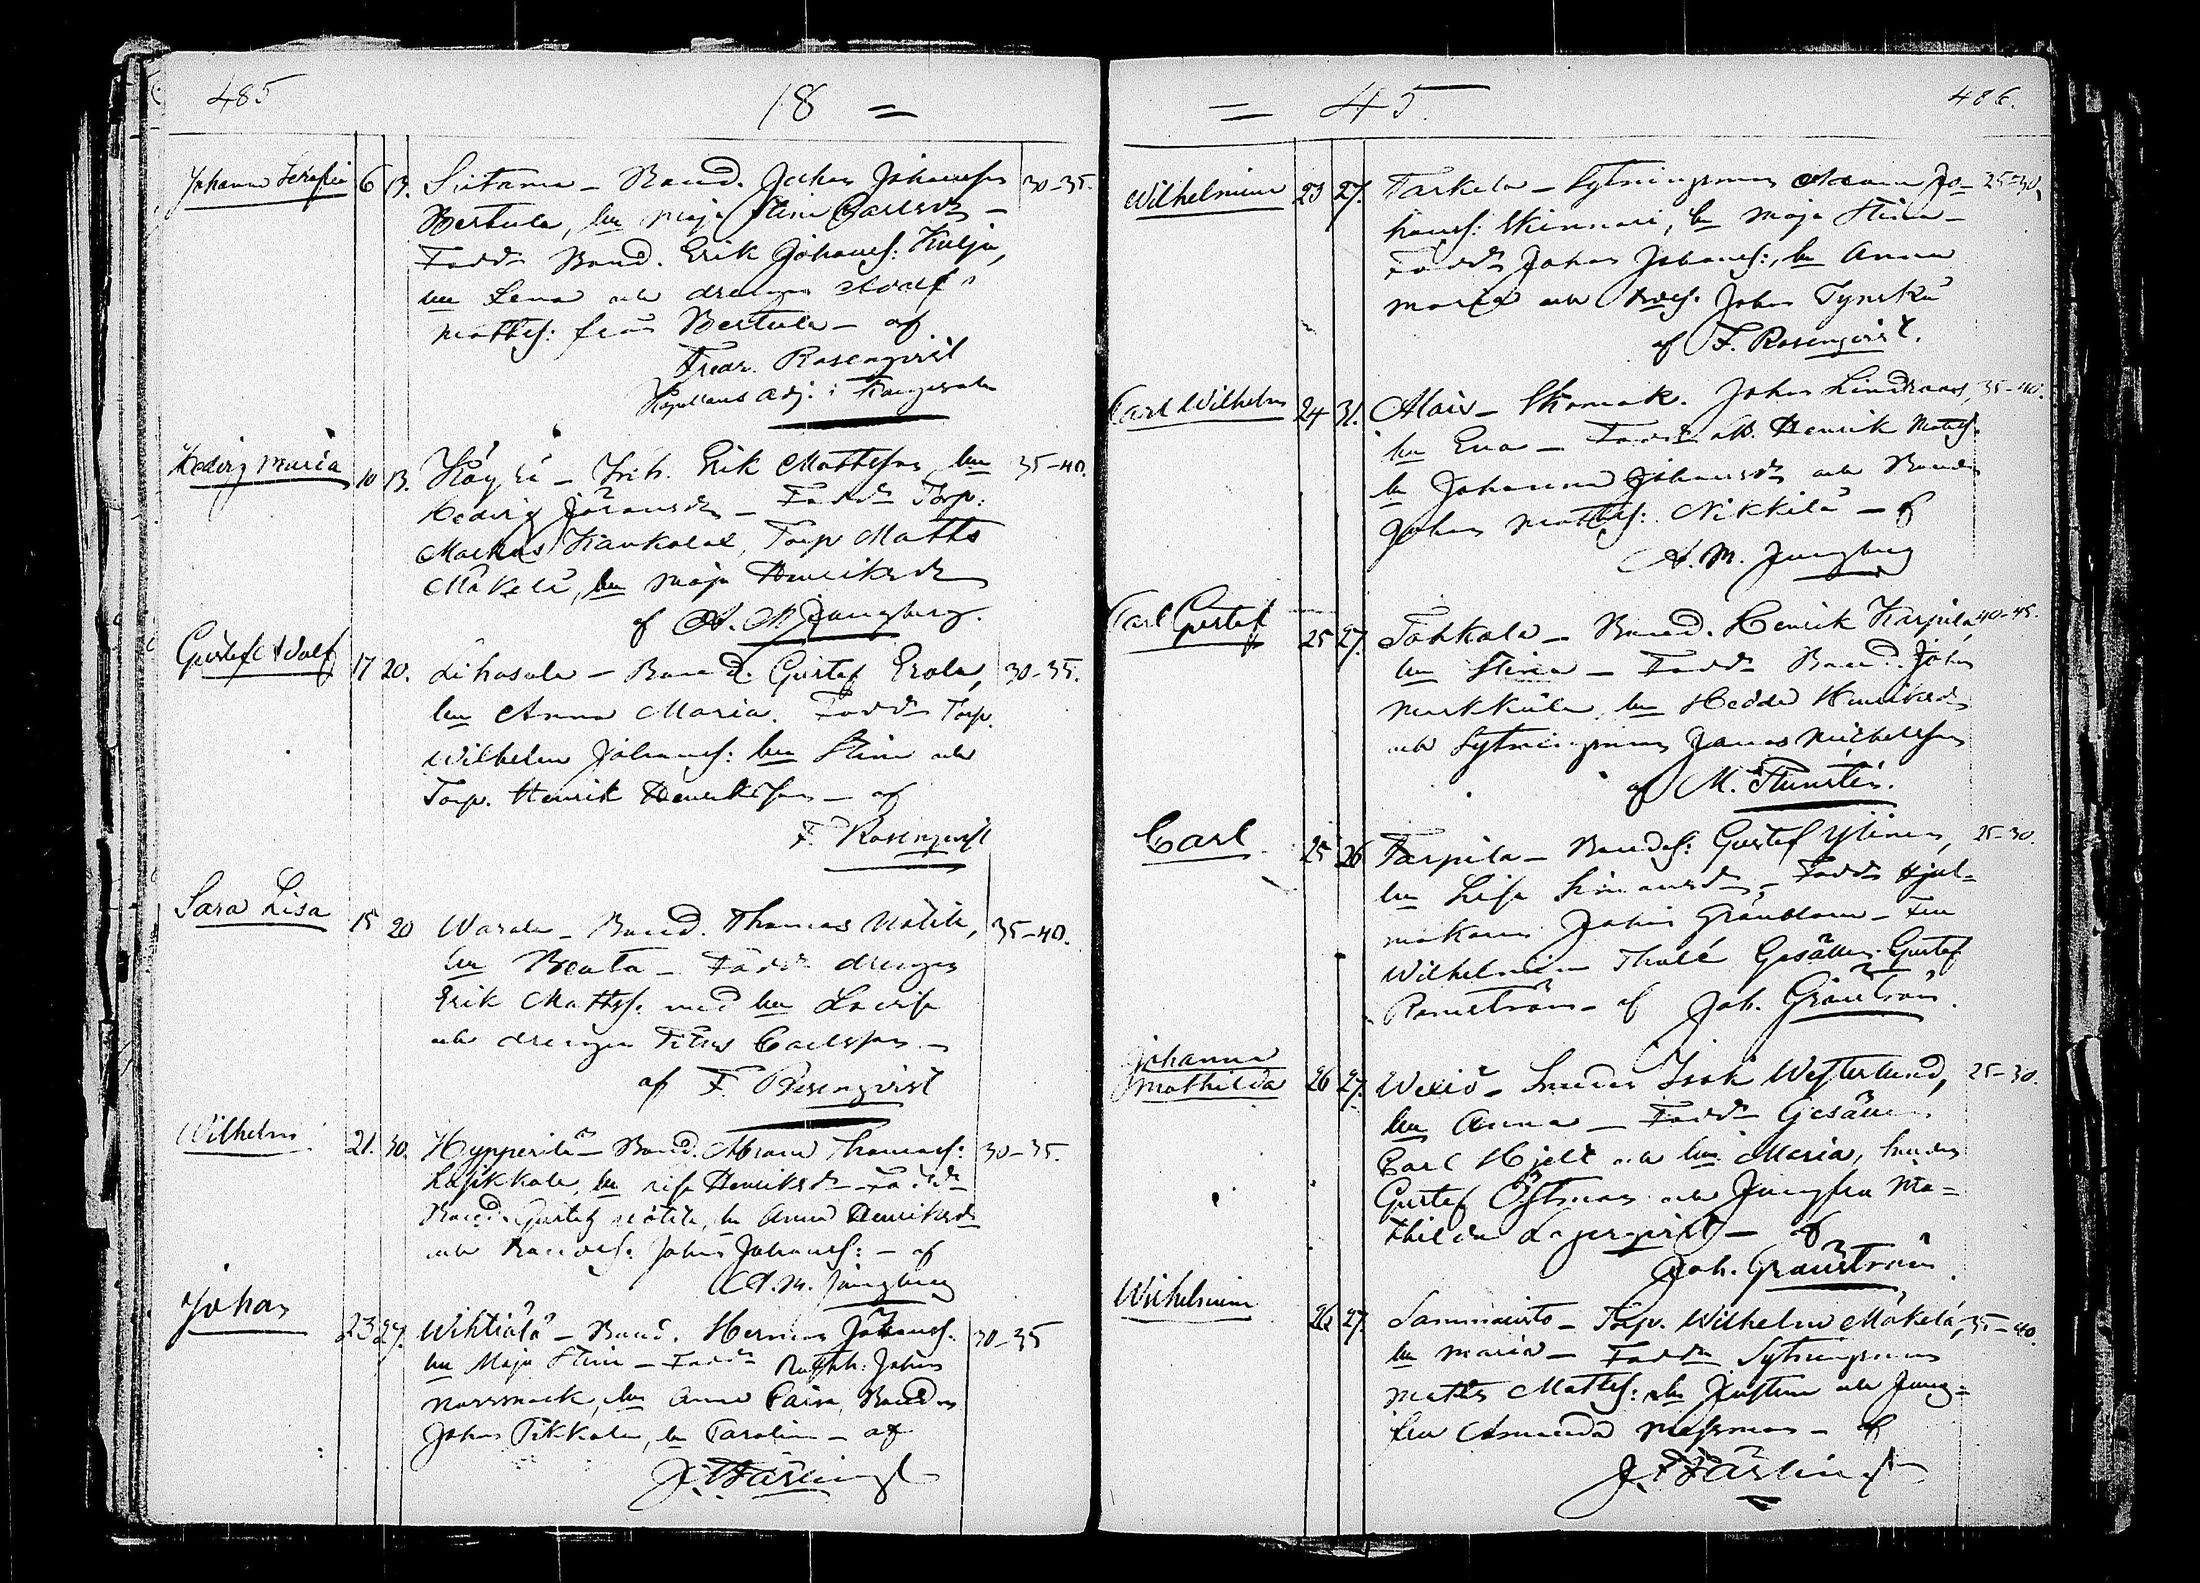 485
18 =
Johanna Serafia 6 13. Sutama – Bond. Johan Johansson 30–35.
Bertula, hu Maja Stina Carlsdr –
Fadd: Bond. Erik Johanss: Kulju,
hu Lena och drengen Adolf
Mattss: från Bertula – af
Fredr. Rosenqvist
Kapellans adj. i Kangasala
Hedvig Maria 10 13. Höyhä – Inh. Erik Mattsson, hu 35–40.
Hedvig Göransdr – Fadd: Torp.
Markus Kaukolai, Torp Matts
Mäkelä, hu Maja Henriksdr
af A. M. Ljungberg.
Gustaf Adolf 17 20. Lihasula – Bond. Gustaf Erola, 30–35.
hu Anna Maria. Fadd: Torp.
Wilhelm Johanss: hu Stina och
Torp. Henrik Henriksson – af
F. Rosenqvist
Sara Lisa 15 20 Warala – Bond. Thomas Mätik, 35–40.
hu Beata – Fadd: drengen
Erik Mattss. med hu Lovisa
och drengen Titus Carlsson –
af F. Rosenqvist
Wilhelm 21. 30. Hypperilä – Bond. Abram Thomass: 30–35.
hu Lisa Henriksdr – Fadd:
Bond. Gustaf, hu Anna Henriksdr
och Bondes: Johan Johanss: – af
A. M. Ljungberg
Johan 23 27. Wihtiälä – Bond. Herman Johanss. 30–35
hu Maja Stina – Fadd: Johan
Norrmark, hu Anna Caisa, Bonden
Johan Pikkala, hu Carolina – af
J. F. Färling
= 45. 486.
Wilhelmina 23 27. Tarkela – Sytningsman Jo- 25–30,
hanss: Skinnari, hu Maja Stina –
Fadd: Johan Johanss:, hu Anna
Maria och Johan Tynskä
af F. Rosenqvist.
Carl Wilhelm 24 31. Alais – Skomak. Johan Lindroos, 35–40.
hu Eva – Fadd: Henrik Matts.
hu Johanna Johansdr och Bonden
Johan Mattss: Nikkilä – af
A. M. Ljungberg
Carl Gustaf 25 27. Tohkala – Bond. Henrik Karpila, 40–45.
hu Stina – Fadd: Bond. Johan
Markkula, hu Hedda Henriksdr
och Sytningsman Jonas Michelsson
af M. Thunstén.
Carl 25 26 Tarpila – Bondes: Gustaf Ylinen, 25–30.
hu Lisa Simonsdr, – Fadd: Hjul-
makaren Johan Granblom – Fru
Wilhelmina Thulé Gesällen Gustaf
Renström – af Joh. Granström.
Johanna
Mathilda 26 27. Wexiö – Smeden Isak Westerlund, 25–30.
hu Anna – Fadd: Gesällen
Carl Hjelt och hu Maria, Smeden
Gustaf Östman och Jungfru Ma-
thilda Lagerqvist – af
Joh. Granström
Wilhelmina 26 27. Sammaisto – Torp. Wilhelm Mäkelä, 35–40.
hu Maria – Fadd: Sytningsman
Matts Mattss: hu Justina och Jung-
fru Amanda Messman – af
J. F. Färling